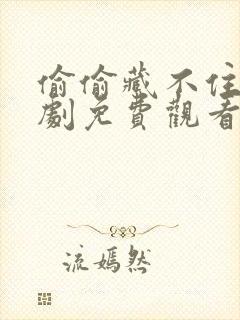 偷偷藏不住
劇免費觀看
流嫣然